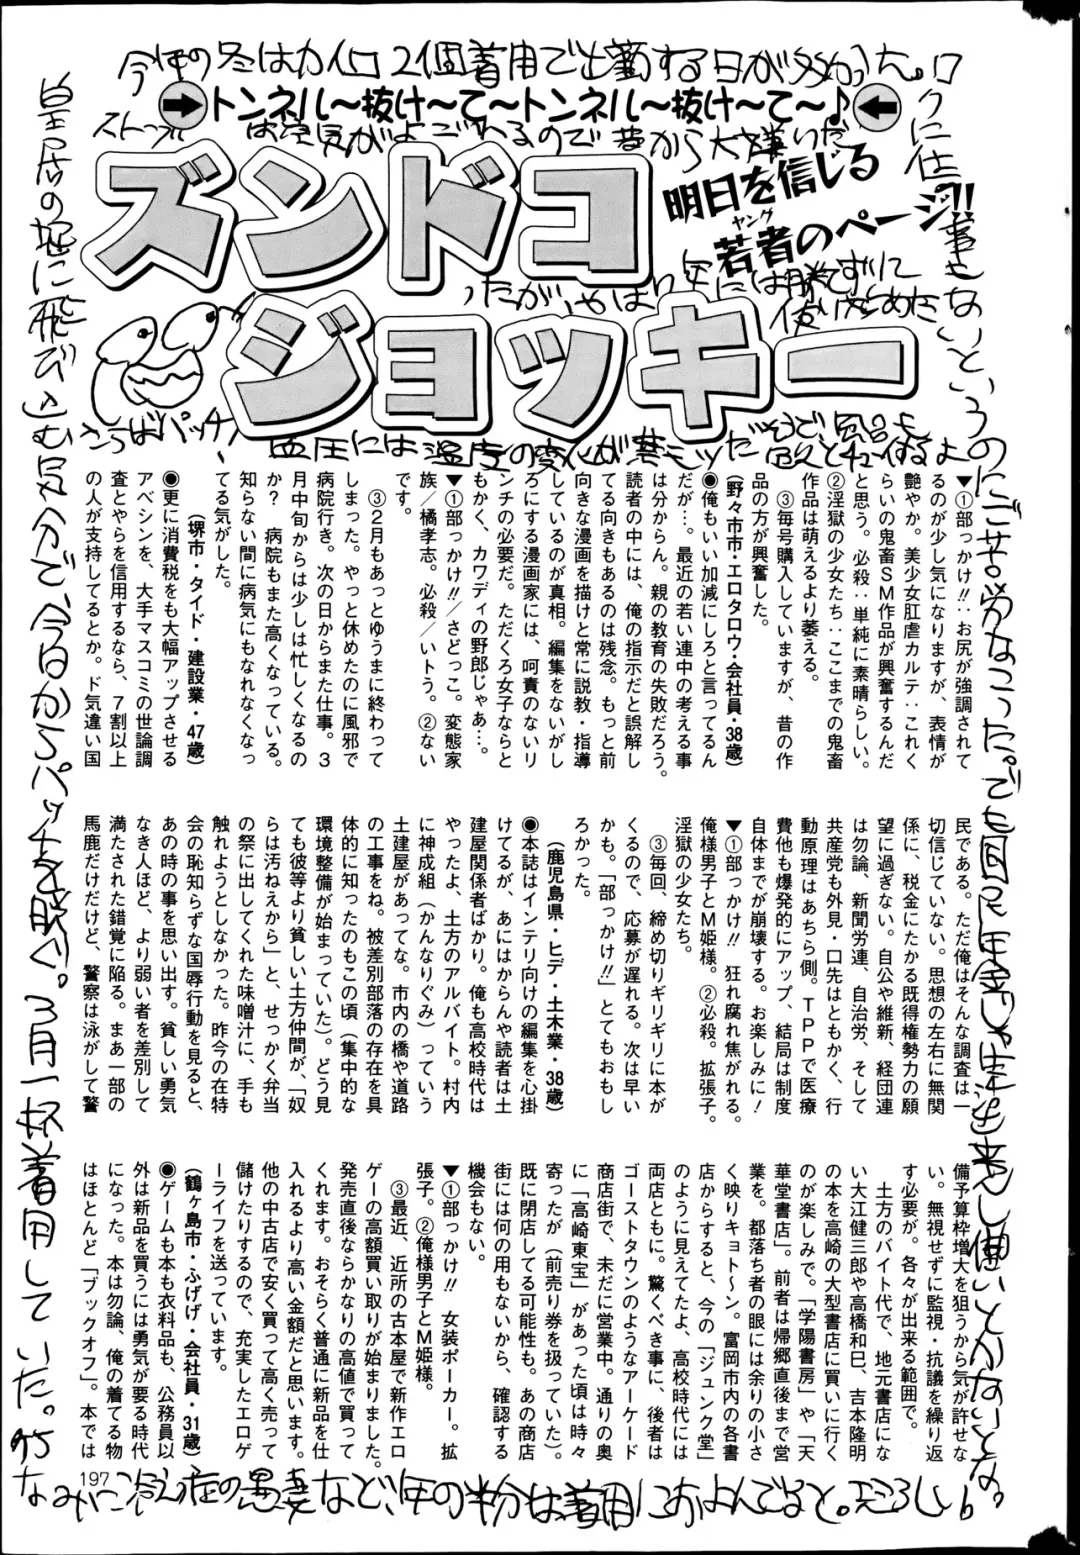 今年の冬はカイロ2個着用で出勤する日が多かった。ロクに仕事をしないというのにご苦労なこった。でも
トンネル〜抜け〜て〜トンネル〜抜け〜て〜♪
ズンドコ
ジョッキー
明日を信じる
若者のページ!!
ヤング
▼①部っかけ!!‥お尻が強調されて
るのが少し気になりますが、表情が
艶やか。美少女肛虐カルテ‥これく
らいの鬼畜SM作品が興奮するんだ
と思う。必殺‥単純に素晴らしい。
②淫獄の少女たち‥ここまでの鬼畜
作品は萌えるより萎える。
③毎号購入していますが、昔の作
品の方が興奮した。
(野々市市・エロタロウ・会社員・38歳)
◉俺もいい加減にしろと言ってるん
だが…。最近の若い連中の考える事
は分からん。親の教育の失敗だろう。
読者の中には、俺の指示だと誤解し
てる向きもあるのは残念。もっと前
向きな漫画を描けと常に説教・指導
しているのが真相。編集をないがし
ろにする漫画家には、呵責のないリ
ンチの必要だ。ただくろ女子ならと
もかく、カワディの野郎じゃあ…。
▼①部っかけ!!/さどっこ。変態家
族/橘孝志。必殺/いトう。②ない
です。
③2月もあっとゆうまに終わって
しまった。やっと休めたのに風邪で
病院行き。次の日からまた仕事。3
月中旬からは少しは忙しくなるの
か? 病院もまた高くなっている。
知らない間に病気にもなれなくなっ
てる気がした。
(堺市・タイド・建設業・47歳)
◉更に消費税をも大幅アップさせる
アベシンを、大手マスコミの世論調
査とやらを信用するなら、7割以上
の人が支持してるとか。ド気違い国
民である。ただ俺はそんな調査は一
切信じていない。思想の左右に無関
係に、税金にたかる既得権勢力の願
望に過ぎない。自公や維新、経団連
は勿論、新聞労連、自治労、そして
共産党も外見・口先はともかく、行
動原理はあちら側。TPPで医療
費他も爆発的にアップ、結局は制度
自体までが崩壊する。お楽しみに!
▼①部っかけ!! 狂れ腐れ焦がれる。
俺様男子とM姫様。②必殺。拡張子。
淫獄の少女たち。
③毎回、締め切りギリギリに本が
くるので、応募が遅れる。次は早い
かも。「部っかけ!!」とてもおもし
ろかった。
(鹿児島県・ヒデ・土木業・38歳)
◉本誌はインテリ向けの編集を心掛
けてるが、あにはからんや読者は土
建屋関係者ばかり。俺も高校時代は
やったよ、土方のアルバイト。村内
に神成組(かんなりぐみ)っていう
土建屋があってな。市内の橋や道路
の工事をね。被差別部落の存在を具
体的に知ったのもこの頃(集中的な
環境整備が始まっていた)。どう見
ても彼等より貧しい土方仲間が、「奴
らは汚ねえから」と、せっかく弁当
の祭に出してくれた味噌汁に、手も
触れようとしなかった。昨今の在特
会の恥知らずな国辱行動を見ると、
あの時の事を思い出す。貧しい勇気
なき人ほど、より弱い者を差別して
満たされた錯覚に陥る。まあ一部の
馬鹿だけだけど、警察は泳がして警
備予算枠増大を狙うから気が許せな
い。無視せずに監視・抗議を繰り返
す必要が。各々が出来る範囲で。
土方のバイト代で、地元書店にな
い大江健三郎や高橋和巳、吉本隆明
の本を高崎の大型書店に買いに行く
のが楽しみで。「学陽書房」や「天
華堂書店」。前者は帰郷直後まで営
業を。都落ち者の眼には余りの小さ
く映りキョト〜ン。富岡市内の各書
店からすると、今の「ジュンク堂」
のように見えてたよ、高校時代には
両店ともに。驚くべき事に、後者は
ゴーストタウンのようなアーケード
商店街で、未だに営業中。通りの奥
に「高崎東宝」があった頃は時々
寄ったが(前売り券を扱っていた)。
既に閉店してる可能性も。あの商店
街には何の用もないから、確認する
機会もない。
▼①部っかけ!! 女装ポーカー。拡
張子。②俺様男子とM姫様。
③最近、近所の古本屋で新作エロ
ゲーの高額買い取りが始まりました。
発売直後ならかなりの高値で買って
くれます。おそらく普通に新品を仕
入れるより高い金額だと思います。
他の中古店で安く買って高く売って
儲けたりするので、充実したエロゲ
ーライフを送っています。
(鶴ヶ島市・ふげげ・会社員・31歳)
◉ゲームも本も衣料品も、公務員以
外は新品を買うには勇気が要る時代
になった。本は勿論、俺の着てる物
はほとんど「ブックオフ」。本では
197
皇居の堀に飛び込む気分で、今日からパッチを脱ぐ。3月一杯着用していた。